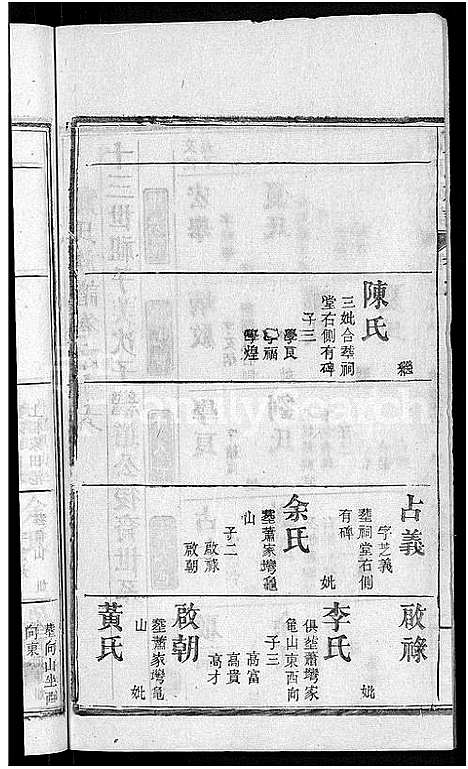 陳氏
繼
三妣合塟祠
堂右側有碑
子三
學良
學福
學煌
占義
字芝義
塟祠堂右側
有碑
余氏
妣
塟蕭家塆龜
山
子二
啟祿
啟朝
啟祿
李氏
妣
俱塟蕭塆家
龜山東西向
子三
高富
高貴
高才
啟朝
塟蕭家塆龜
山
黃氏
妣
塟向山坐西
向東